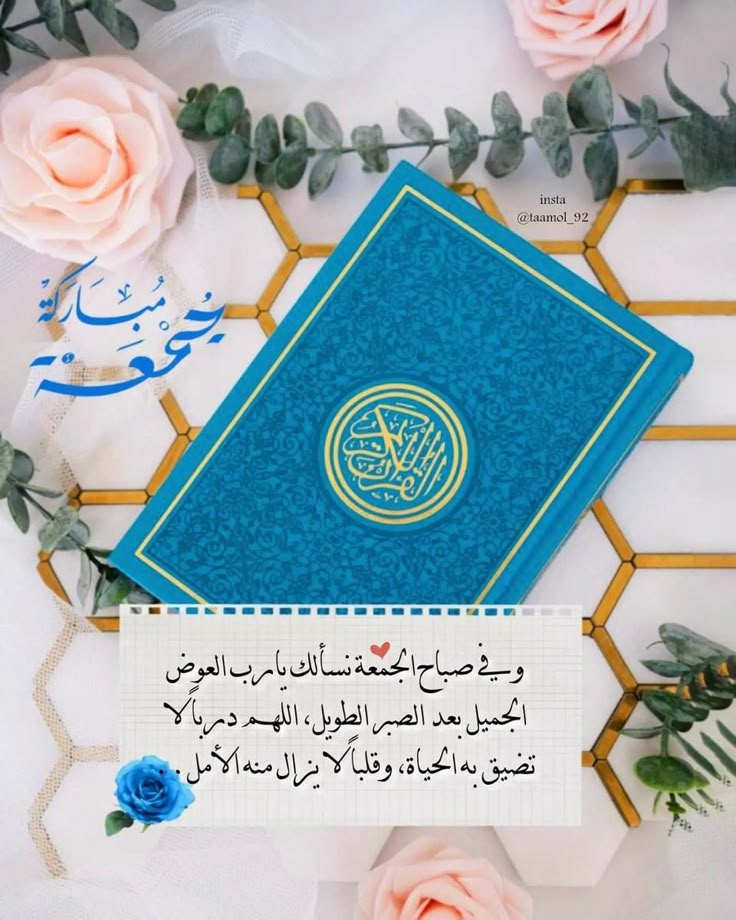 insta
@taamol_92
جُمعَة
مُبَارَكَة
القرآن الكريم
و في صباح الجمعة نسألك يا رب العوض
الجميل بعد الصبر الطويل، اللهم درباً لا
تضيق به الحياة، وقلباً لا يزال منه الأمل ..